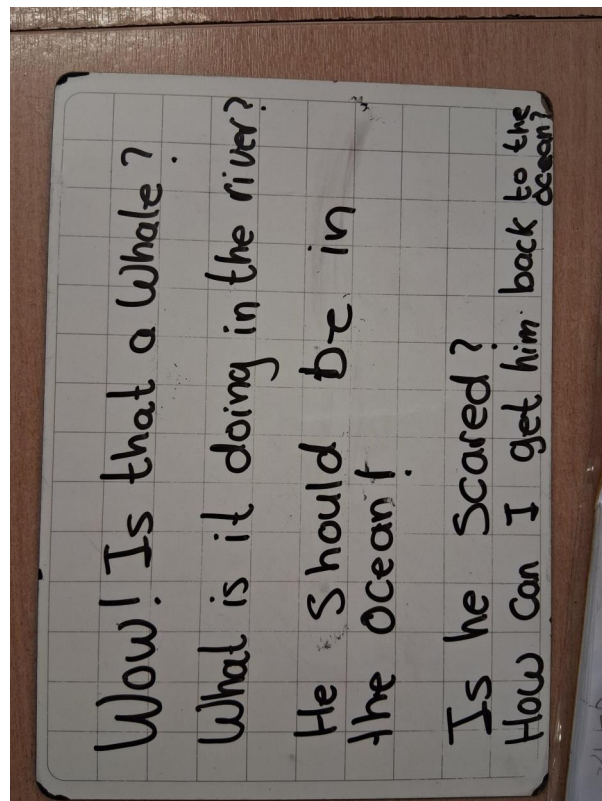 Wow! Is that a Whale?
What is it doing in the river?
He Should be in
the ocean!
Is he Scared?
How Can I get him back to the
ocean?